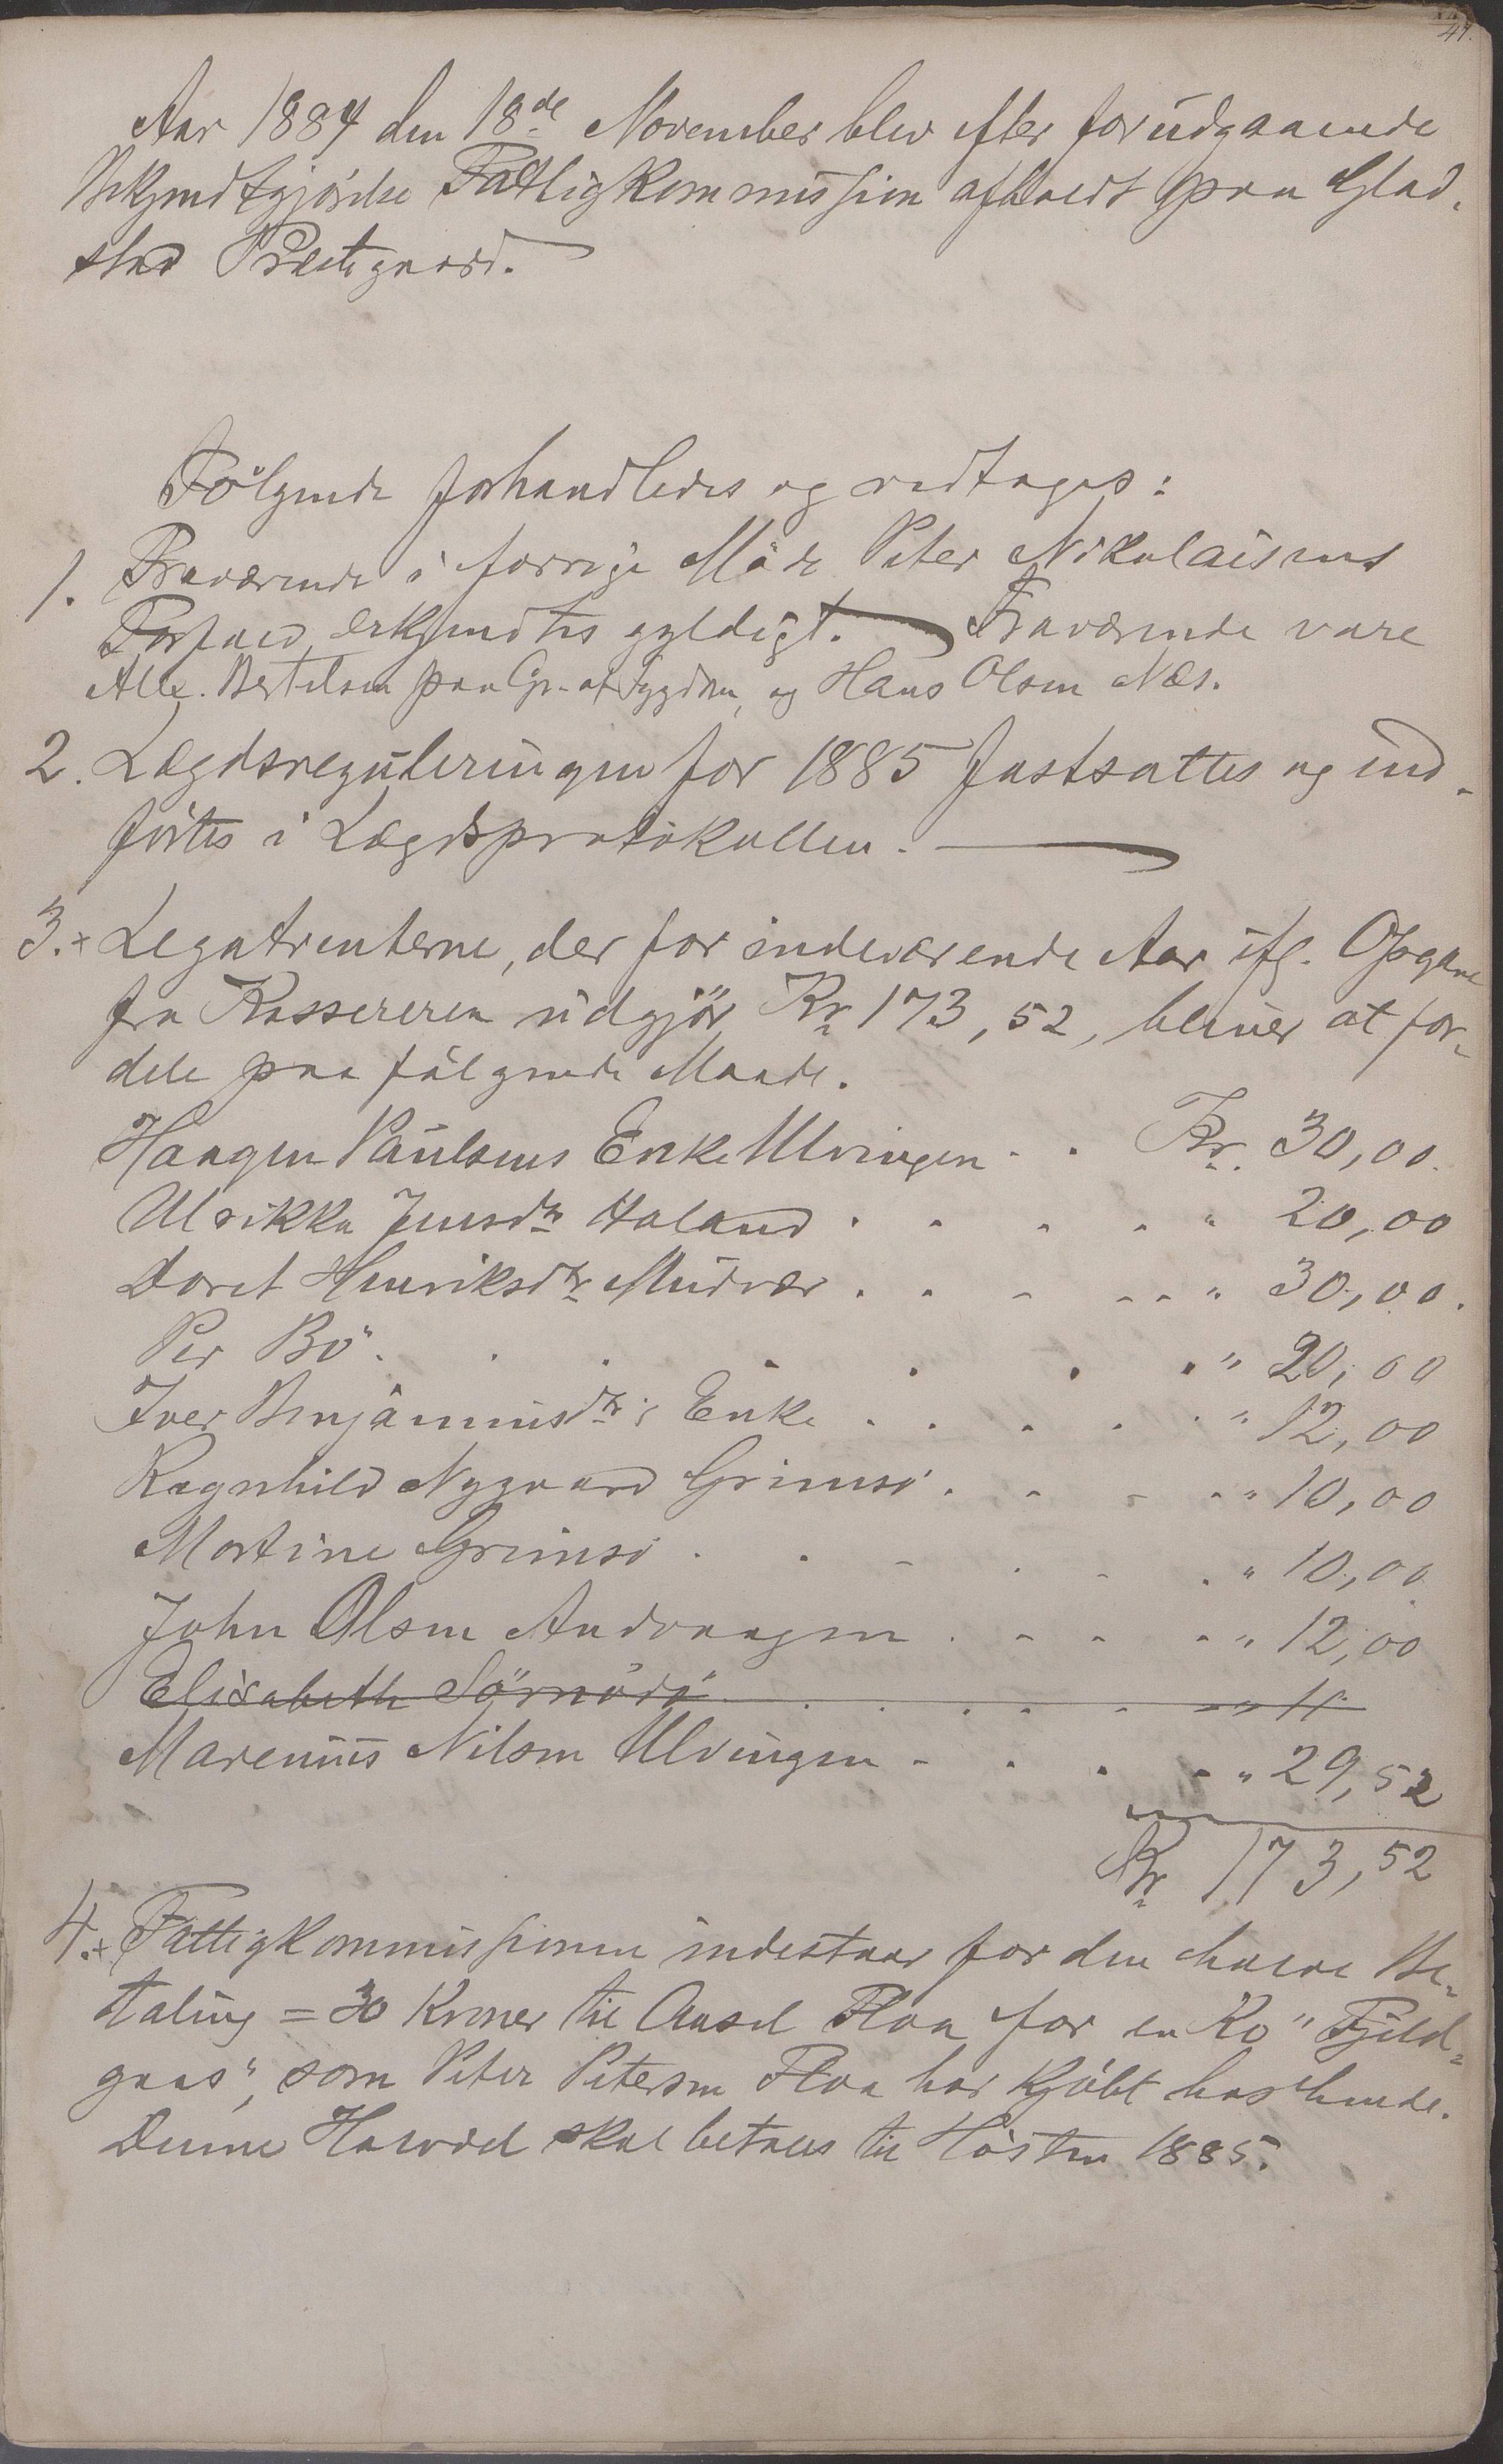 41.
Aar 1884 den 18de November blev efter forudgaaende
Bekjendtgjörelse Fattigkommission afholdt paa Glad-
stad Præstegaard.
Fölgende forhandledes og vedtoges:
1. Fraværende i forrige Möde Peter Nikolaisens
Forfald erkjendtes gyldigt. Fraværende vare
Alex. Bertelsen paa Gr. af Sygdom, og Hans Olsen Næs.
2. Lægdsreguleringen for 1885 fastsattes og ind-
förtes i Lægdsprotokollen.
3.+ Legatrenterne, der for indeværende Aar ifg. Opgave
fra Kassereren udgjör Kr 173,52, bliver at for-
dele paa fölgende Maade.
Haagen Paulsens Enke Ulvingen . . Kr. 30,00.
Ulrikka Jensdtr Haland . . . . " 20,00
Doret Henriksdtr Mudvær . . . . . " 30,00.
Per Bö . . . . . . . " 20,00
Iver Benjaminsdtr's Enke . . . . . " 12,00
Ragnhild Nygaard Grimsö . . . . " 10,00
Martine Grimsö . . . . . . " 10,00
John Olsen Andvaagen . . . . " 12,00
Elisabeth Sörnödö . . . . . . "
Marenius Nilsen Ulvingen . . . . " 29,52
Kr 173,52
4.+ Fattigkommissionen indestaar for den halve Be-
taling = 30 Kroner til Ansel Floa for en Ko "Fjeld-
gaas", som Peter Petersen Floa har kjöbt hos hende.
Denne Halvdel skal betales til Hösten 1885.